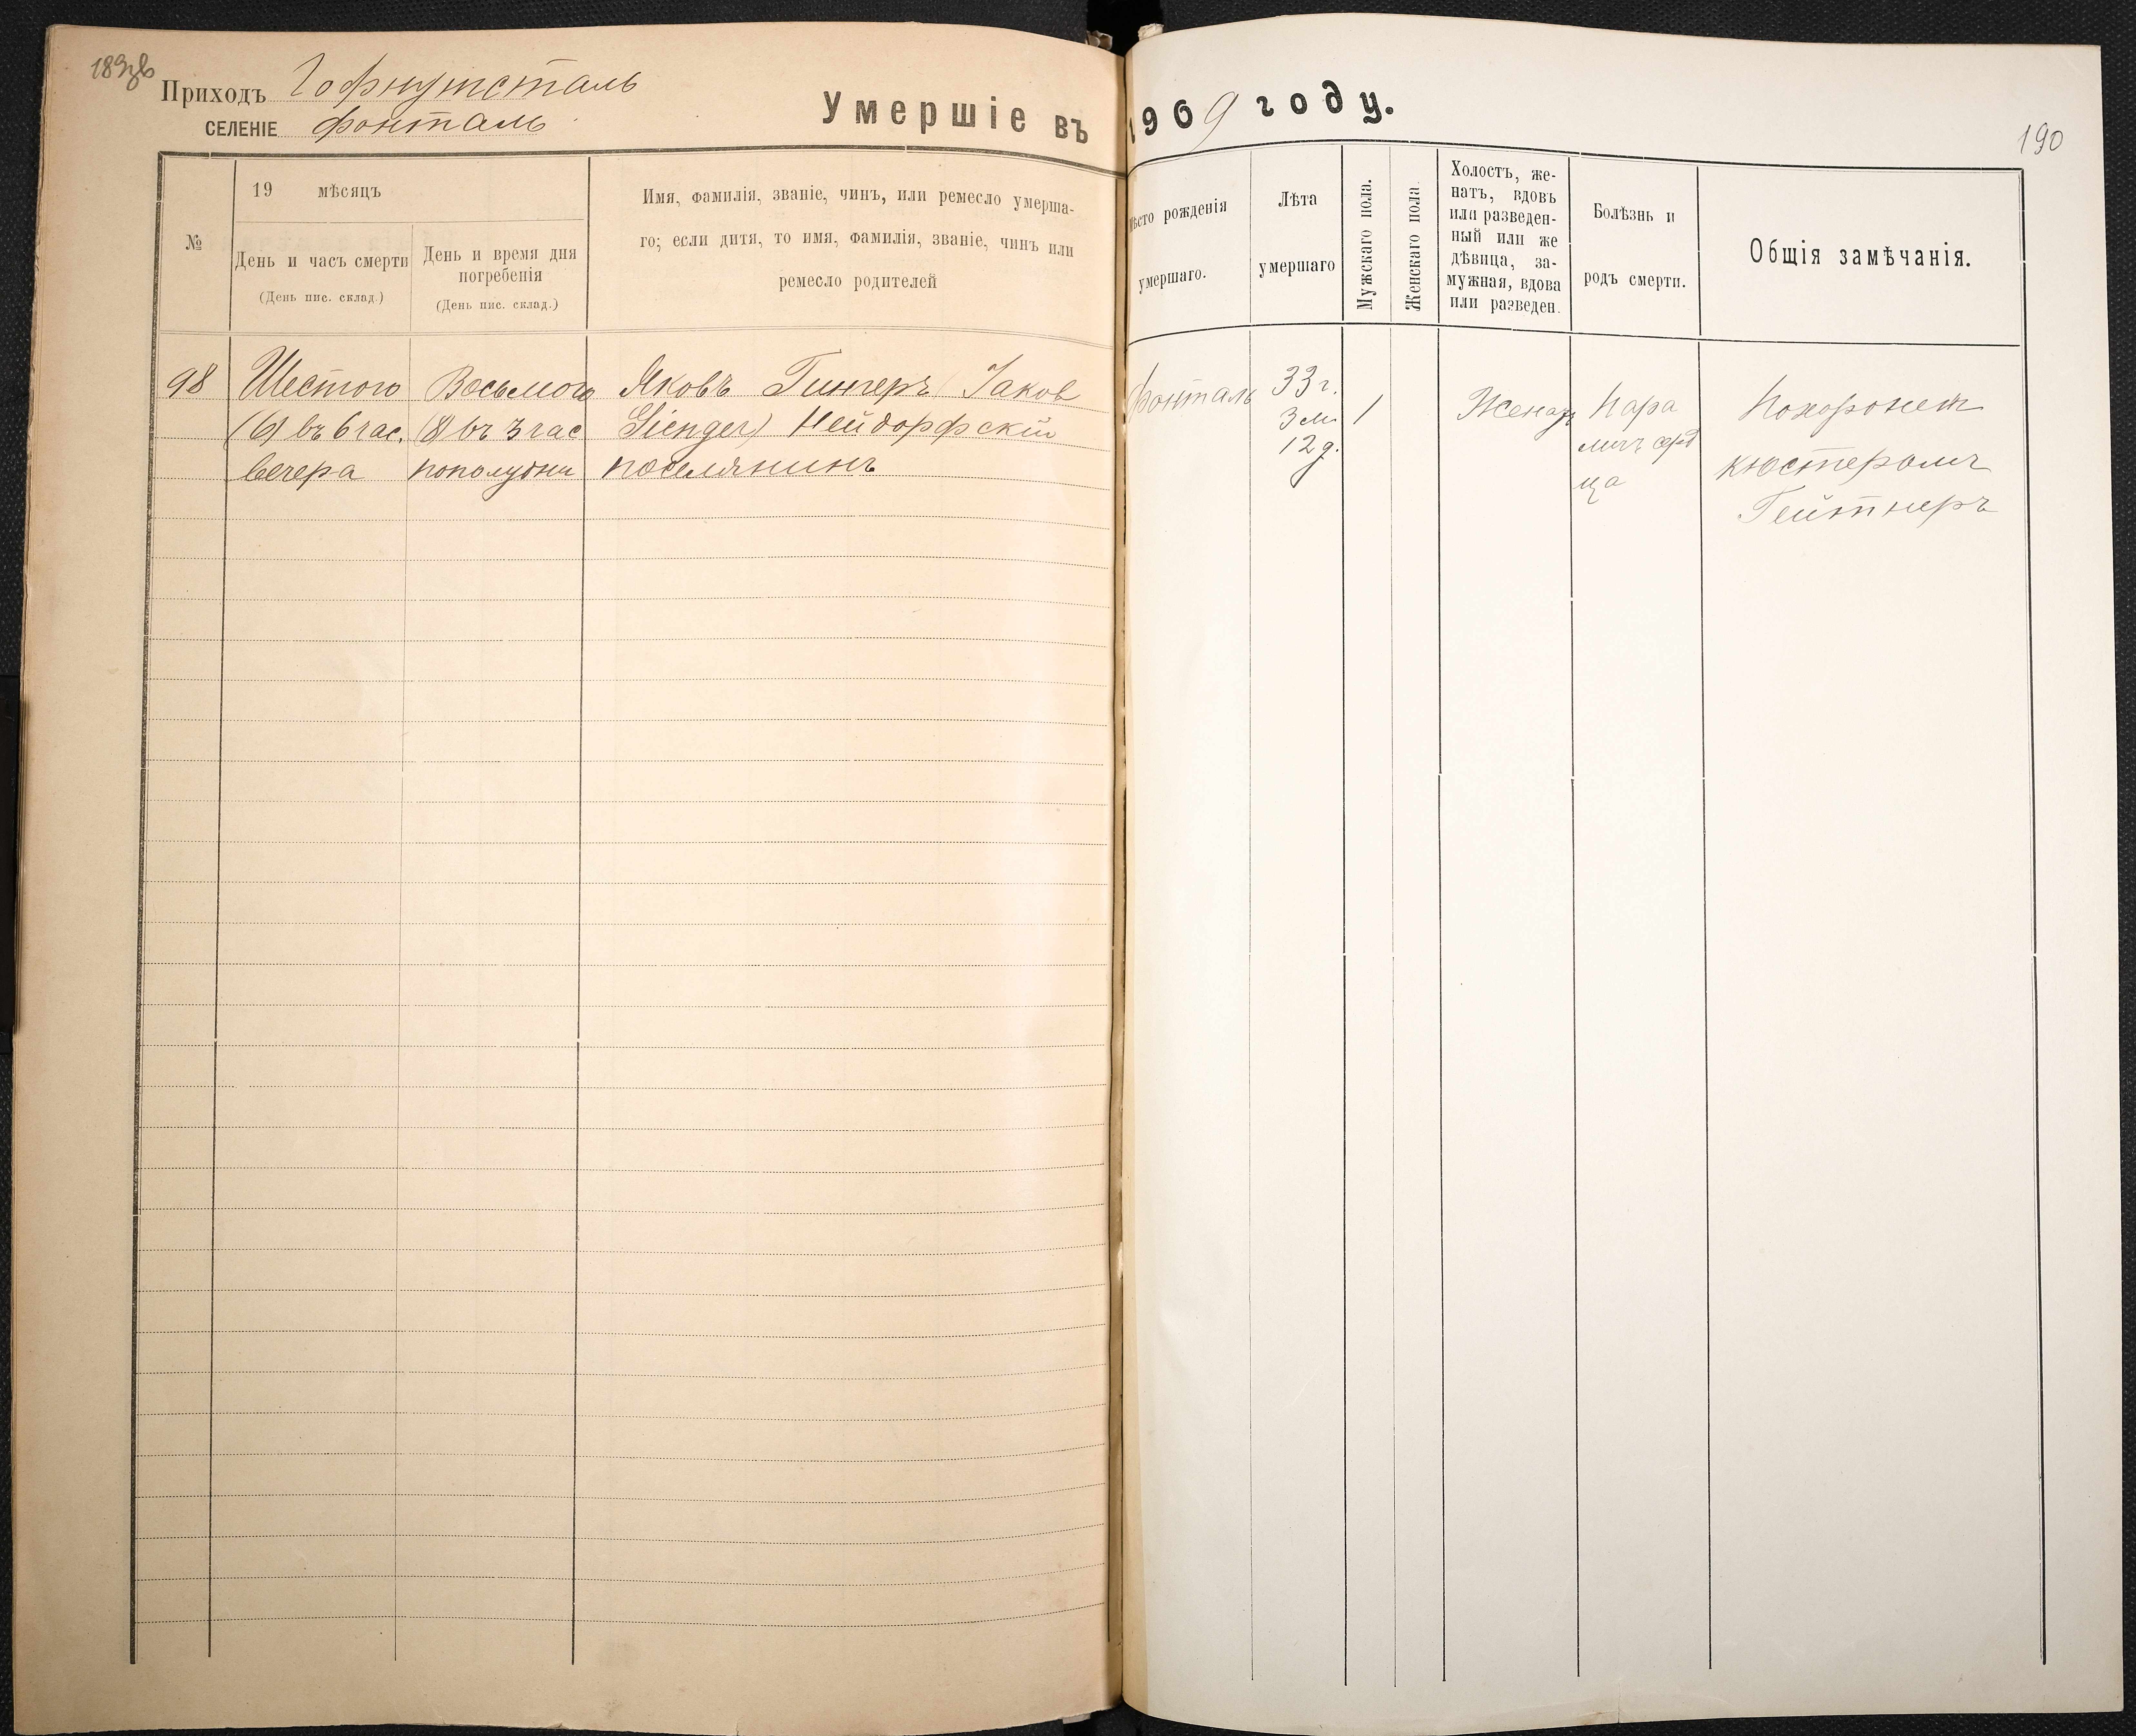 Приходъ Гофнунгсталь
СЕЛЕНІЕ Фонталь
Умершіе въ 1909 году.
190
№
19 мѣсяцъ
День и часъ смерти
(День пис. склад.)
День и время дня
погребенія
(День пис. склад.)
Имя, фамилія, званіе, чинъ, или ремесло умерша-
го; если дитя, то имя, фамилія, званіе, чинъ или
ремесло родителей
Мѣсто рожденія
умершаго.
Лѣта
умершаго
Мужскаго пола.
Женскаго пола.
Холостъ, же-
натъ, вдовъ
или разведен-
ный или же
дѣвица, за-
мужная, вдова
или разведен.
Болѣзнь и
родъ смерти.
Общія замѣчанія.
98
Шестого
(6) въ 6 час.
вечера
Восьмого
(8) въ 3 час
пополудни
Яковъ Гингеръ (Jakob
Ginger) Нейдорфскій
поселянинъ
Фонталь
33 г.
3 м.
12 д.
1
Женатъ
Пара
личъ серд
ца
Похоронет
кюстеромъ
Гейтнеръ